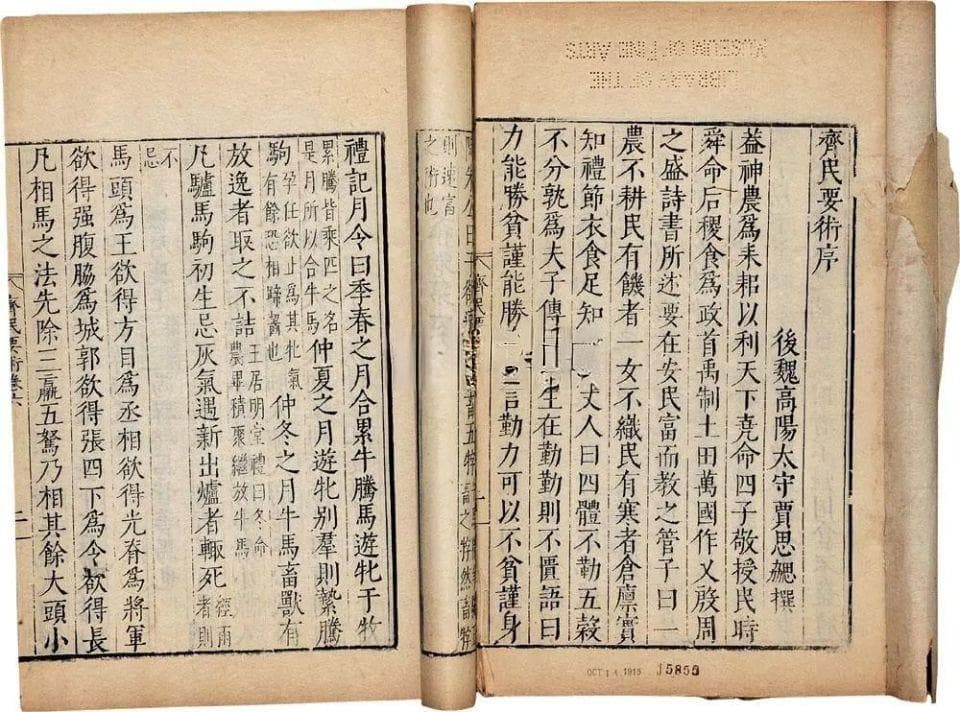 LIBRARY OF THE
MUSEUM OF FINE ARTS
齊民要術序
後魏高陽太守賈思勰撰
益神農爲耒耜以利天下堯命四子敬授民時
舜命后稷食爲政首禹制土田萬國作乂殷周
之盛詩書所述要在安民富而教之管子曰一
農不耕民有饑者一女不織民有寒者倉廩實
知禮節衣食足知丈人曰四體不勤五穀
不分孰爲夫子傳曰生在勤勤則不匱語曰
力能勝貧謹能勝言勤力可以不貧謹身
齊民要
公曰子欲五牸之牸然畜牸
則速富
之術也
禮記月令曰季春之月合累牛騰馬遊牝于牧
累騰皆乘匹之名是月所以合牛馬仲夏之月遊牝別羣則縶騰
駒孕任欲止爲其牝氣有餘恐相蹄齧也仲冬之月牛馬畜獸有
放逸者取之不詰王居明堂禮曰冬命農畢積聚繼放牛馬
凡驢馬駒初生忌灰氣遇新出爐者輒死經雨者則
不忌
馬頭爲王欲得方目爲丞相欲得光脊爲將軍
欲得强腹脇爲城郭欲得張四下爲令欲得長
凡相馬之法先除三羸五駑乃相其餘大頭小
齊民要術卷六
二
OCT 14 1915 15855